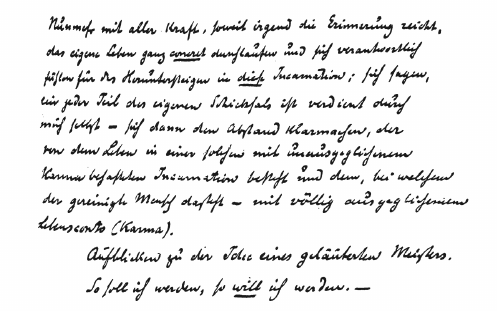 Nunmehr mit aller Kraft, soweit irgend die Erinnerung reicht,
das eigene Leben ganz concret durchlaufen und sich verantwortlich
fühlen für das Heruntersteigen in diese Incarnation; sich sagen,
ein jeder Teil des eigenen Schicksals ist verdient durch
mich selbst – sich dann den Abstand klarmachen, der
von dem Leben in einer solchen mit unausgeglichenem
Karma behafteten Incarnation besteht und dem, bei welchem
der gereinigte Mensch dasteht – mit völlig ausgeglichenem
Lebensconto (Karma).
Aufblicken zu der Idee eines geläuterten Meisters.
So soll ich werden, so will ich werden. –